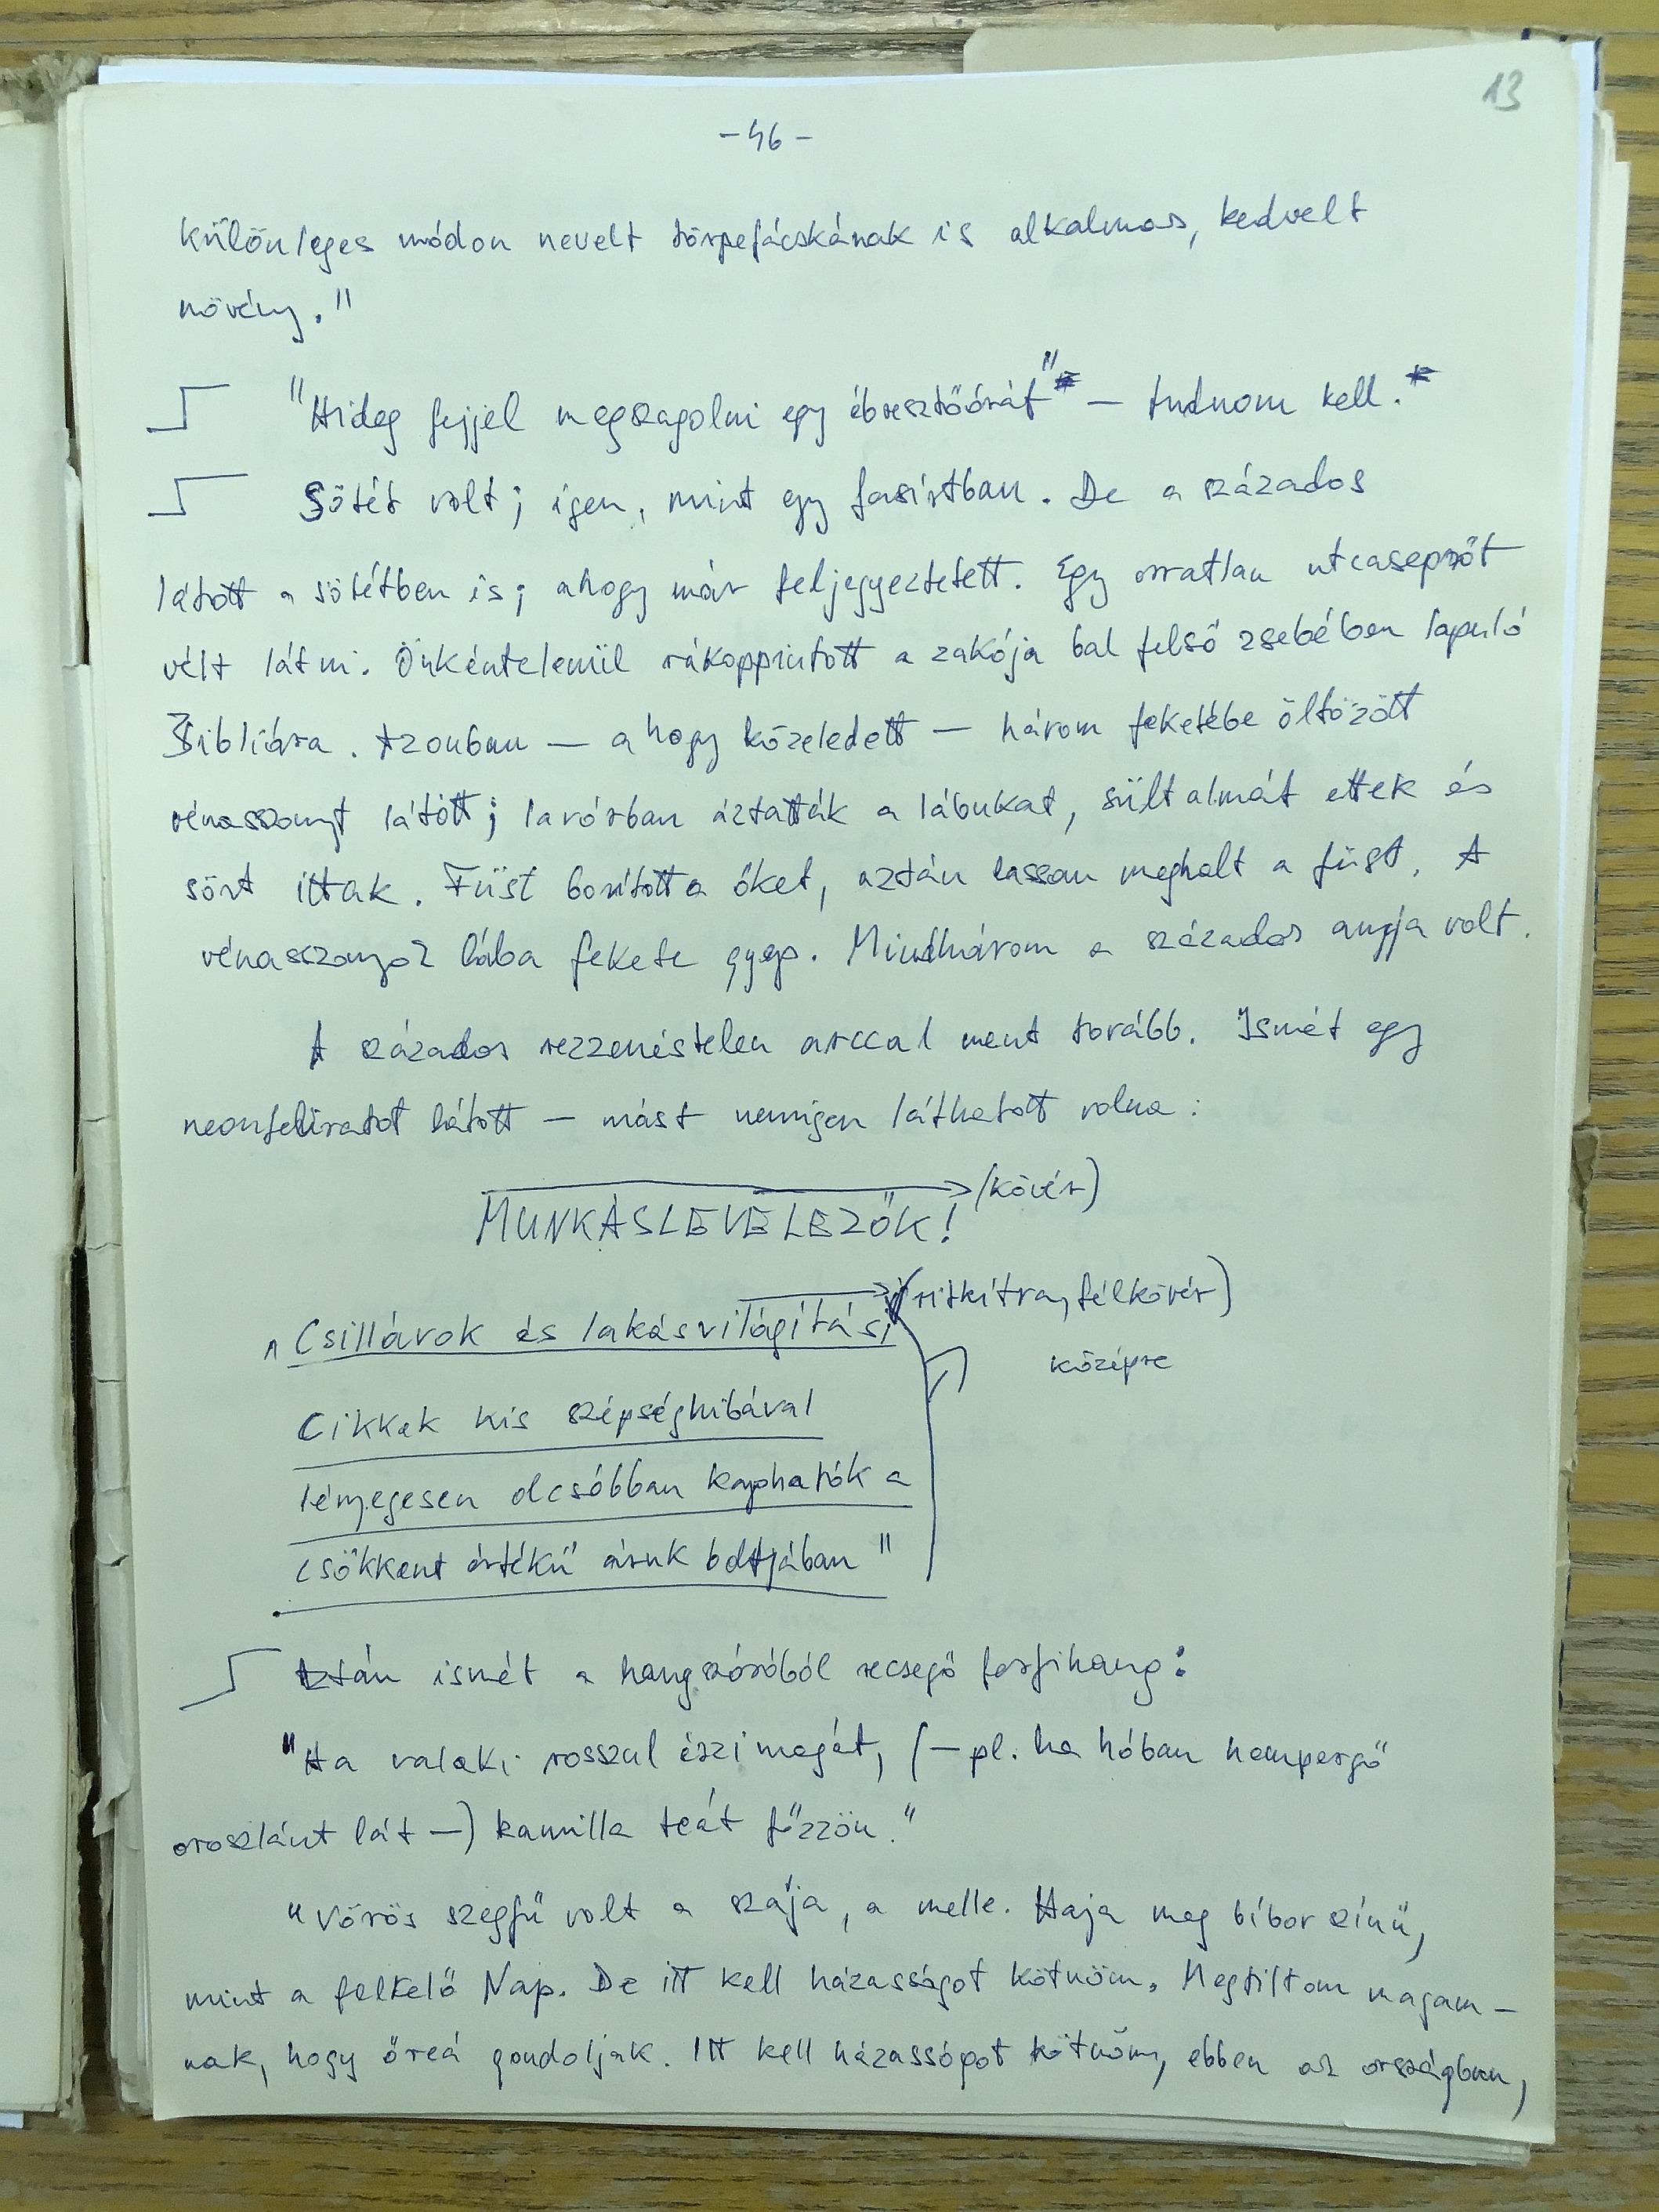 13
-46-
különleges módon nevelt törpefácskának is alkalmas, kedvelt
növény."
"Hideg fejjel megszagolni egy ébresztőórát" — tudnom kell.*
Sötét volt; igen, mint egy fasírtban. De a százados
látott a sötétben is; ahogy már feljegyeztetett. Egy orratlan utcaseprőt
vélt látni. Önkéntelenül rákoppintott a zakója bal felső zsebében lapuló
Bibliára. Azonban — ahogy közeledett — három feketébe öltözött
vénasszonyt látott; lavórban áztatták a lábukat, sült almát ettek és
sört ittak. Füst borította őket, aztán lassan meghalt a füst. A
vénasszonyok lába fekete gyep. Mindhárom a százados anyja volt.
A százados rezzenéstelen arccal ment tovább. Ismét egy
neonfeliratot látott — mást nemigen láthatott volna:
MUNKÁSLEVELEZŐK! (kövér)
"Csillárok és lakásvilágítási (ritkítva, félkövér)
középre
Cikkek kis szépséghibával
lényegesen olcsóbban kaphatók a
csökkent értékű áruk boltjában"
Aztán ismét a hangszóróból recsegő férfihang:
"Ha valaki rosszul érzi magát, (—pl. ha hóban hempergő
oroszlánt lát —) kamilla teát főzzön."
"Vörös szegfű volt a szája, a melle. Haja meg bíbor színű,
mint a felkelő Nap. De itt kell házasságot kötnöm. Megtiltom magam-
nak, hogy őreá gondoljak. Itt kell házasságot kötnöm, ebben az országban,